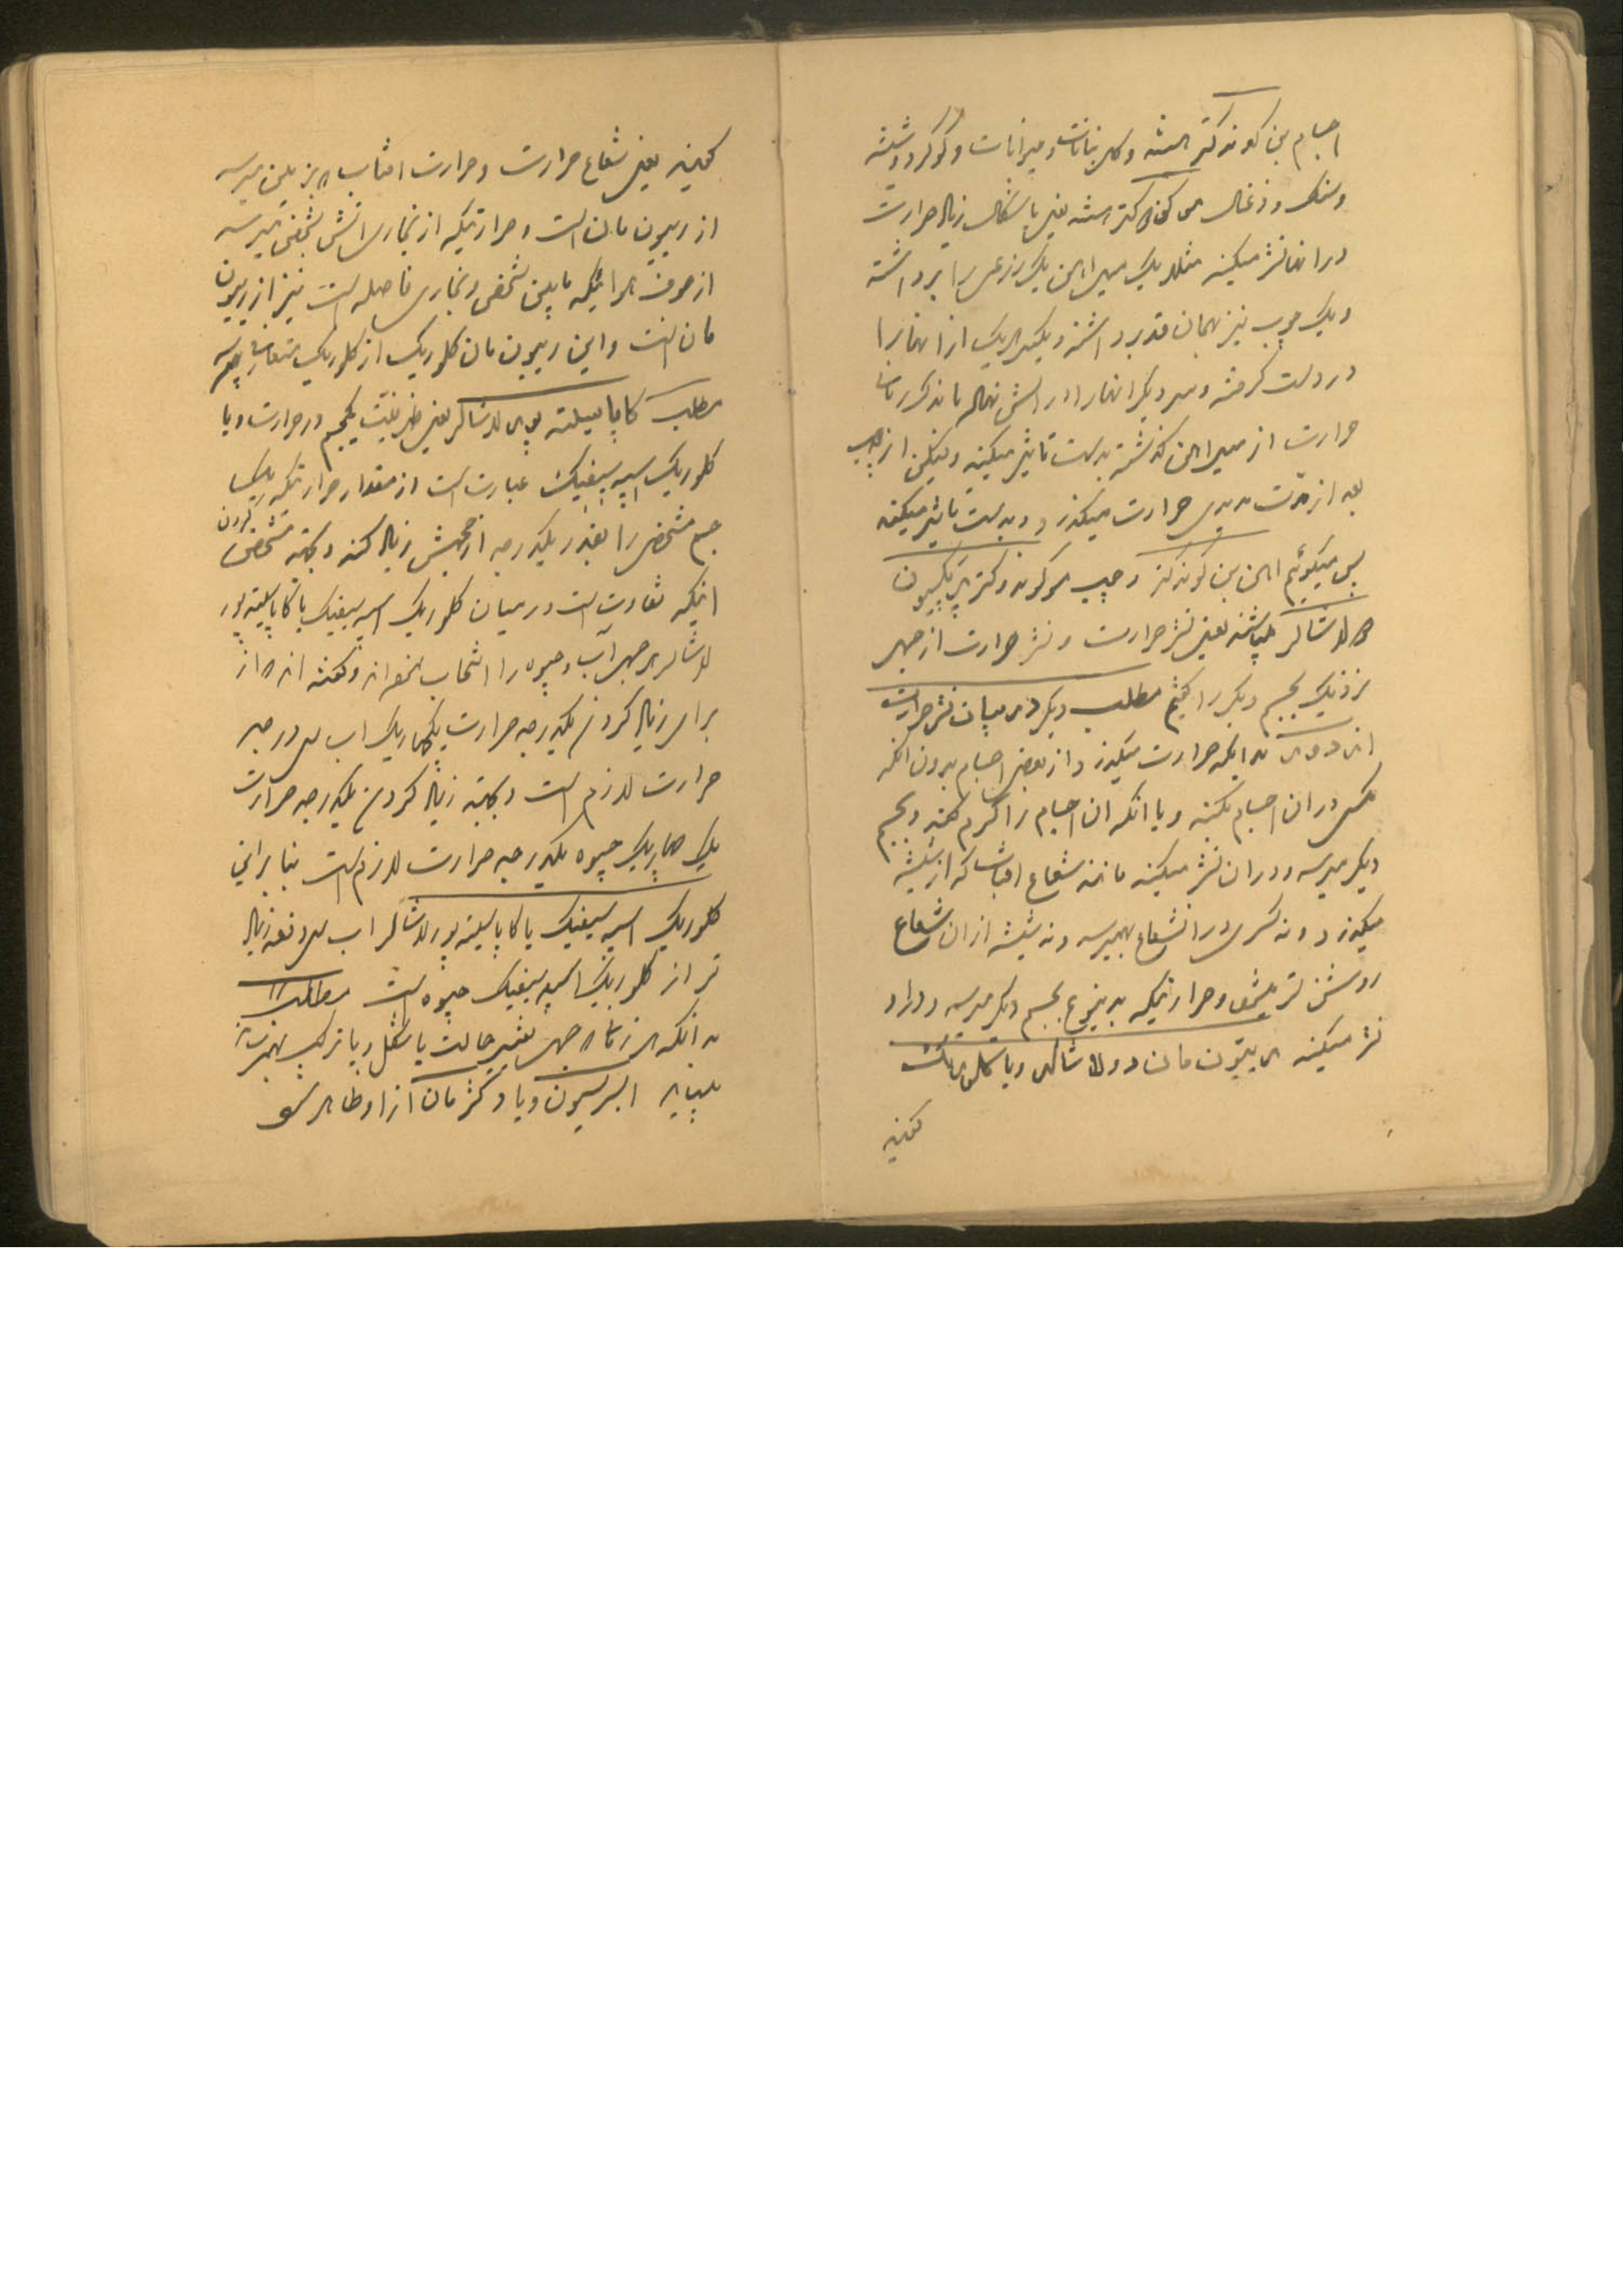 اجسام بن کوندکتر هستند و کل نباتات و حیوانات و کوکرد و شیشه
و سنک و ذغال مو کوندکتر هستند یعنی باشکال زیاد حرارت
در انها نشر میکند مثلا یک میل اهن یک ذرعی را برداشته
و یک چوب نیز بهمان قدر برداشته و یکسر هر یک از انها را
در دست کرفته و سر دیکر انها را در اتش نهاده ماند کرر
حرارت از میل اهن کذشته بدست تاثیر میکند ولیکن از چوب
بعد از مدت مدیدی حرارت میکذرد و بدست تاثیر میکند
پس میکوئیم اهن بن کوندکتر و چوب مو کوندوکتر
دولاشالر میباشند یعنی نشر حرارت و نشر حرارت از جهر
نزدیک بجسم دیکر را کفتیم مطلب دیکر در بیان نشر حرارت
از دور بدانکه حرارت میکذرد از بعضی اجسام بدون انکه
مکس در ان اجسام بکند و یا انکه ان اجسام را کرم کند و بجسم
دیکر میرسد و در ان نشر میکند مانند شعاع افتاب که از شیشه
میکذرد و نه کسری در ان شعاع بهم میرسد و نه شیشه از ان شعاع
روشن تر میشود و حرارتیکه بدینوع بجسم دیکر میرسد و در او
نشر میکند رییون مان دولاشالر و یا کلوریک
کفتند
کفتند یعنی شعاع حرارت و حرارت افتاب که بزمین میرسد
از رییون مان است و حرارتیکه از بخاری اتش بشخص میرسد
از حرف هوائیکه مابین شخص و بخاری فاصله است نیز از رییون
مان است و این رییون مان کلوریک از کلوریک متعارف
مطلب کاپاسیته پور لاشالر یعنی ظرفیت یکجسم در حرارت و یا
کلوریک اسپه سیفیک عبارت است از مقدار حرارتیکه یک
جسم مشخص را بقدر یکدرجه از حجمش زیاد کند و بجهة مشخص کردن
اینکه تفاوت است در میان کلوریک اسپه سیفیک یا کاپاسیته پور
لاشالر هر جسم آب و جیوه را انتخاب نموده اند و کفته اند که از
برای زیاد کردن یکدرجه حرارت یکچهار یک اب سی درجه
حرارت لازم است و بجهة زیاد کردن یکدرجه حرارت
یک چهاریک جیوه یکدرجه حرارت لازم است بنابراین
کلوریک اسپه سیفیک یا کاپاسیته پور لاشالر اب سی دفعه زیاد
تر از کلوریک اسپه سیفیک جیوه است مطلب
بدانکه هر زمان که جسم تغییر حالت یا شکل و یا ترکیب
بنماید ابسرسیون و یا دکژمان از او ظاهر شود